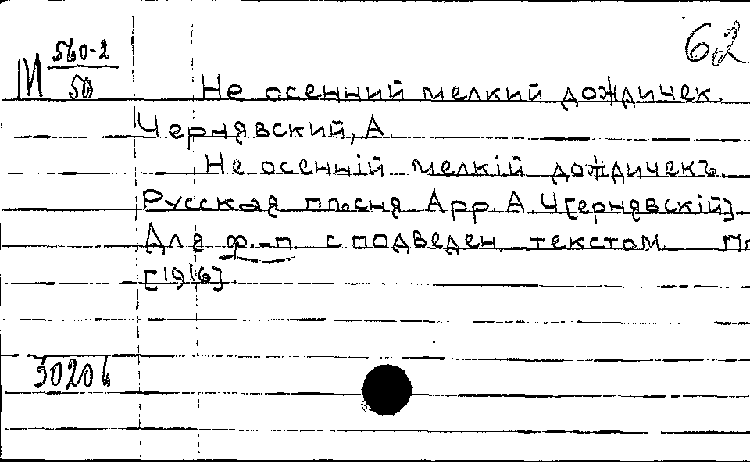 62
М 560-2
50
Не осенний мелкий дождичек.
Чернявский, А
Не осеннiй мелкiй дождичекъ.
Русская пѣсня Арр А. Ч[ернявскiй]
Для ф.-п. с подведен текстом.
[1916].
30206